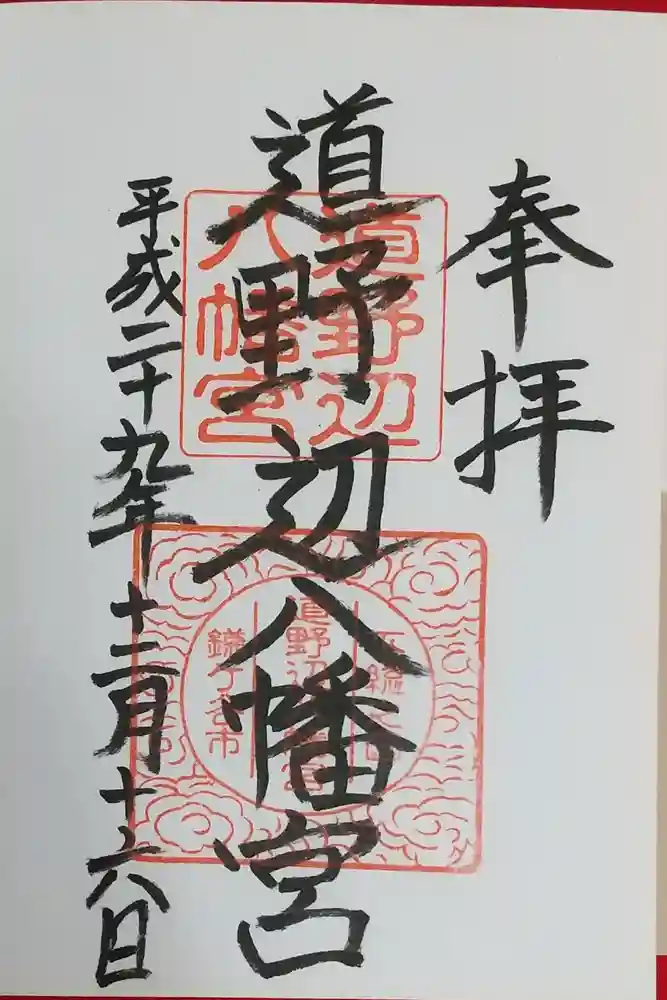 奉拝
道野辺八幡宮
平成二十九年十二月十六日
道野辺
八幡宮
下総之国
道野辺八幡宮
鎌ケ谷市